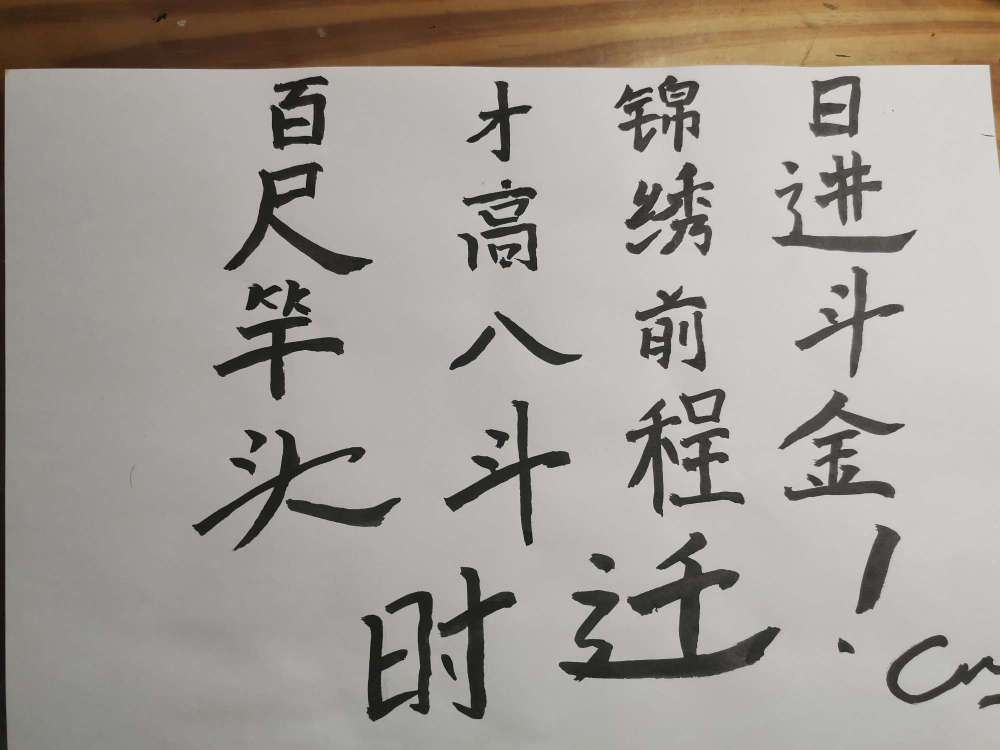 日进斗金!
锦绣前程
才高八斗
百尺竿头
时迁